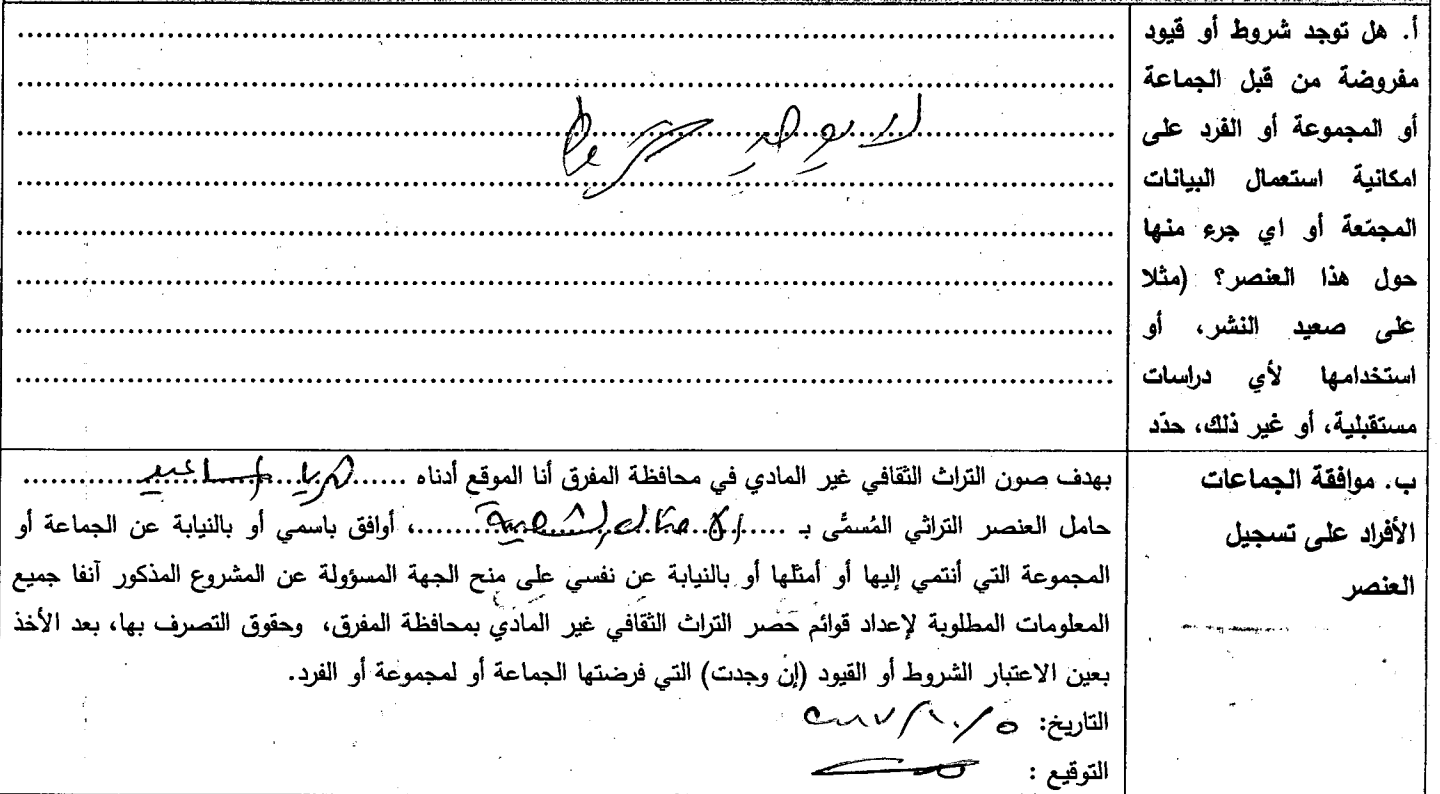 أ. هل توجد شروط أو قيود
مفروضة من قبل الجماعة
أو المجموعة أو الفرد على
امكانية استعمال البيانات
المجمّعة أو اي جرء منها
حول هذا العنصر؟ (مثلا
على صعيد النشر، أو
استخدامها لأي دراسات
مستقبلية، أو غير ذلك، حدّد
لا يوجد شروط
ب. موافقة الجماعات
الأفراد على تسجيل
العنصر
بهدف صون التراث الثقافي غير المادي في محافظة المفرق أنا الموقع أدناه ......
حامل العنصر التراثي المُسمَّى بـ ..... الأمثال الشعبية .....، أوافق باسمي أو بالنيابة عن الجماعة أو
المجموعة التي أنتمي إليها أو أمثلها أو بالنيابة عن نفسي على منح الجهة المسؤولة عن المشروع المذكور آنفا جميع
المعلومات المطلوبة لإعداد قوائم حَصر التراث الثقافي غير المادّي بمحافظة المفرق، وحقوق التصرف بها، بعد الأخذ
بعين الاعتبار الشروط أو القيود (إن وجدت) التي فرضتها الجماعة أو لمجموعة أو الفرد.
التاريخ: ٥/١٠/٢٠١٧
التوقيع :